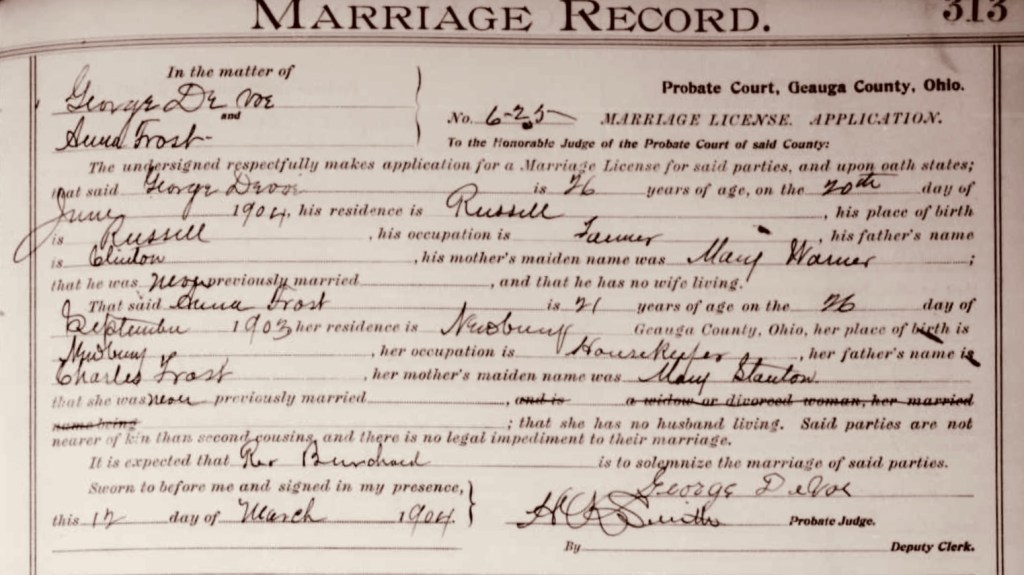 MARRIAGE RECORD. 313
In the matter of
George De Voe
and
Anna Frost
Probate Court, Geauga County, Ohio.
No. 6-25 MARRIAGE LICENSE. APPLICATION.
To the Honorable Judge of the Probate Court of said County:
The undersigned respectfully makes application for a Marriage License for said parties, and upon oath states;
that said George Devoe is 26 years of age, on the 20th day of
June 1904, his residence is Russell, his place of birth
is Russell, his occupation is Farmer, his father's name
is Clinton, his mother's maiden name was Mary Warner;
that he was never previously married, and that he has no wife living.
That said Anna Frost is 21 years of age on the 26 day of
September 1903 her residence is Newbury Geauga County, Ohio, her place of birth is
Newbury, her occupation is Housekeeper, her father's name is
Charles Frost, her mother's maiden name was Mary Stanton.
that she was never previously married, and is a widow or divorced woman, her married
name being; that she has no husband living. Said parties are not
nearer of kin than second cousins, and there is no legal impediment to their marriage.
It is expected that Rev Burchard is to solemnize the marriage of said parties.
Sworn to before me and signed in my presence,
George DeVoe
this 12 day of March 1904.
Smith Probate Judge.
By Deputy Clerk.